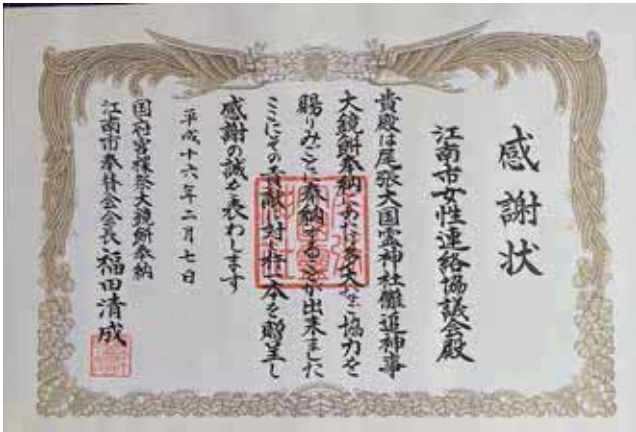 感謝状
江南市女性連絡協議会殿
貴殿は尾張大国霊神社儺追神事
大鏡餅奉納にあたり多大なご協力を
賜りみごとに奉納することが出来ました
ここにその貢献に対し桙一本を贈呈し
感謝の誠を表わします
平成十六年二月七日
国府宮裸祭大鏡餅奉納
江南市奉賛会会長 福田清成